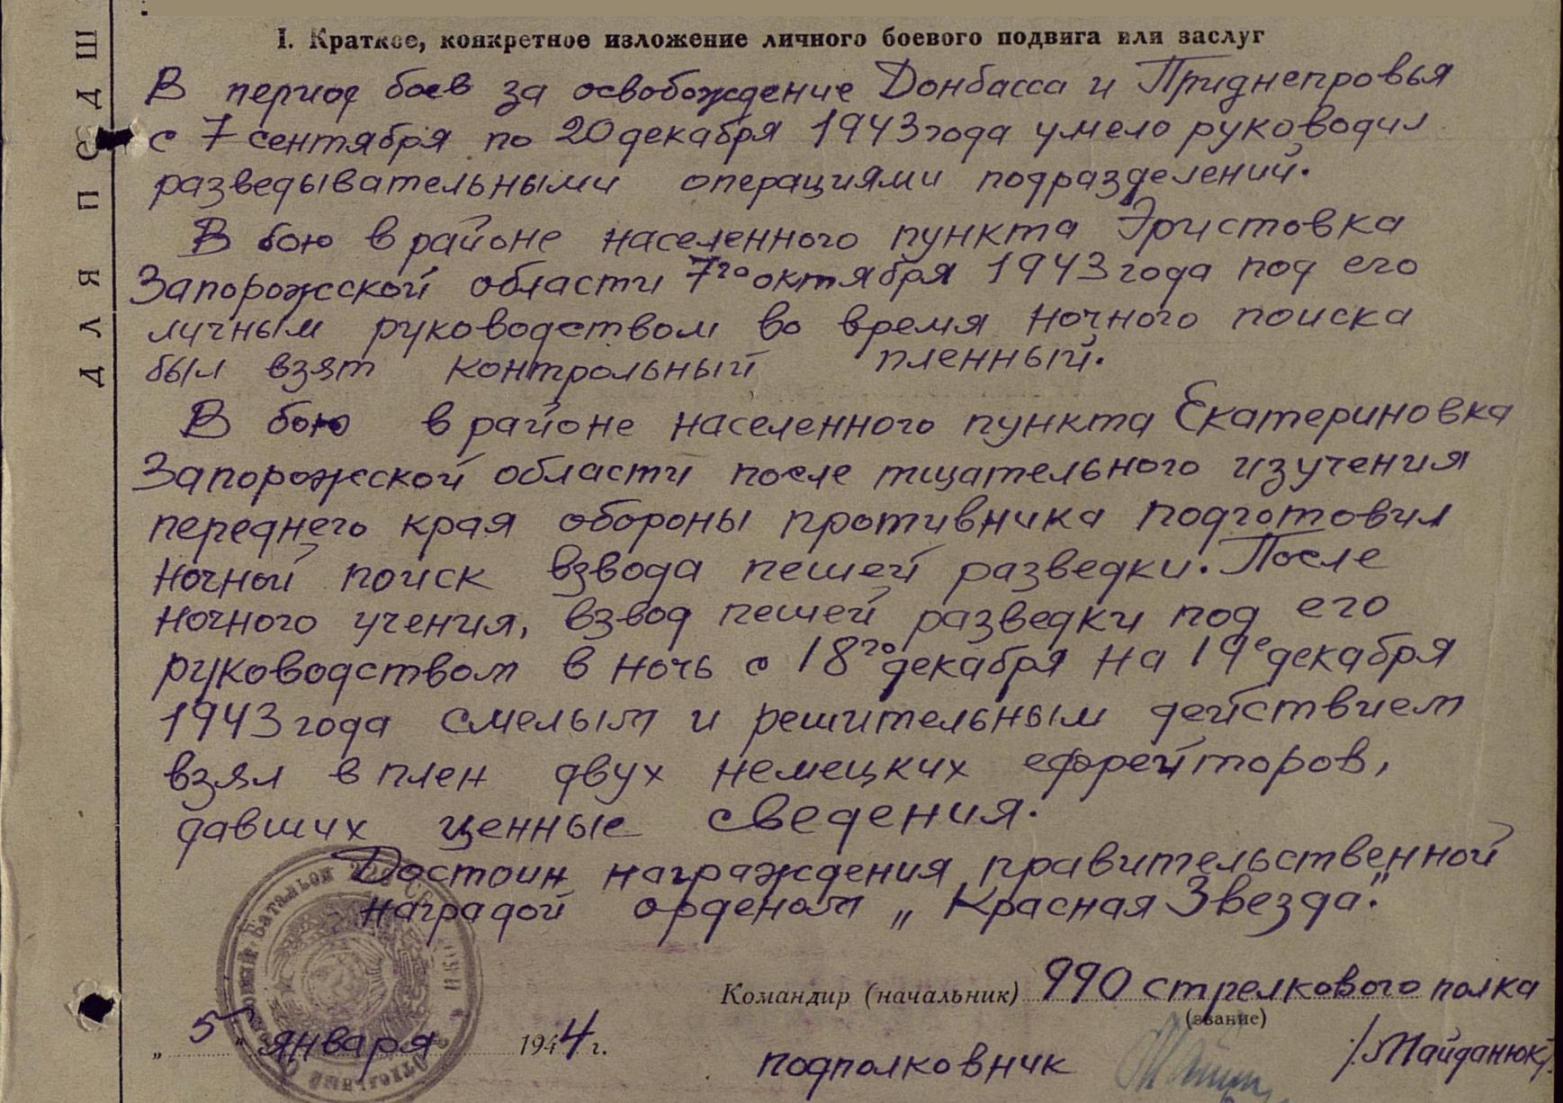 ДЛЯ ПОДШ
I. Краткое, конкретное изложение личного боевого подвига или заслуг
В период боев за освобождение Донбасса и Приднепровья
с 7 сентября по 20 декабря 1943 года умело руководил
разведывательными операциями подразделений.
В бою в районе населенного пункта Эристовка
Запорожсской области 7го октября 1943 года под его
личным руководством во время ночного поиска
был взят контрольный пленный.
В бою в районе населенного пункта Екатериновка
Запорожсской области после тщательного изучения
переднего края обороны противника подготовил
ночной поиск взвода пешей разведки. После
ночного учения, взвод пешей разведки под его
руководством в ночь с 18го декабря на 19е декабря
1943 года смелым и решительным действием
взял в плен двух немецких ефрейторов,
давших ценные сведения.
Достоин награждения правительственной
наградой орденом „Красная Звезда."
Командир (начальник) 990 стрелкового полка
(звание)
„5" января 1944 г.
подполковник /Майданюк/